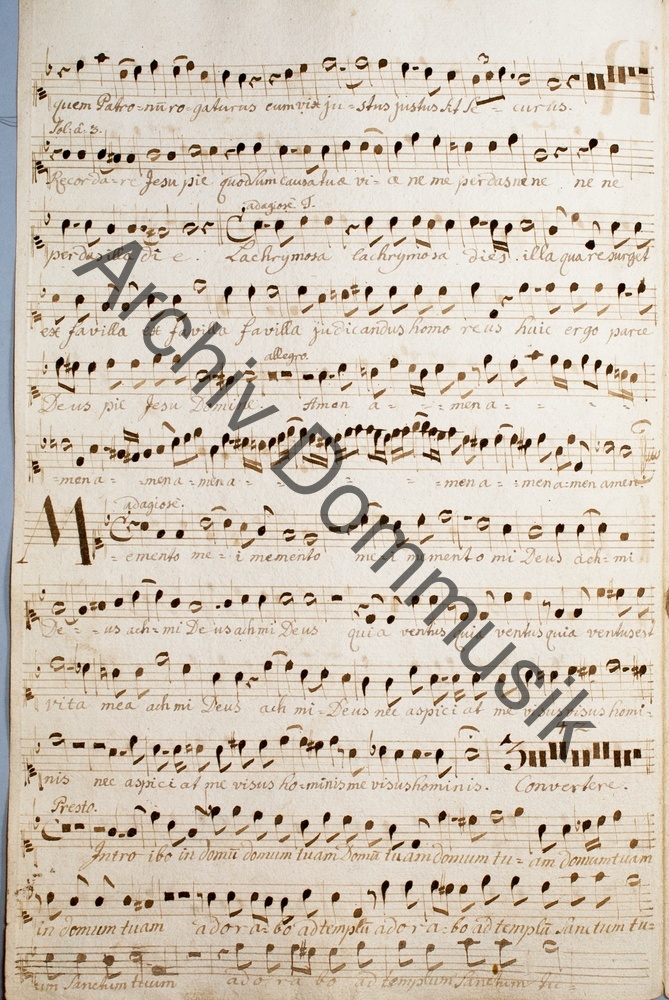 quem Patro-nū ro-gaturus cum vix ju-stus justus sit se-curus.
Sol: â 3.
Recorda-re Jesu pie quod sum causa tuæ vi-æ ne me perdas ne ne ne ne
perdas illa di e. Lachrymosa lachrymosa dies. illa qua resurget
adagiose T.
ex favilla ex favilla favilla judicandus homo reus huic ergo parce
allegro.
Deus pie Jesu Domine. Amen a---mena---
-mena-mena-mena----mena-mena-men amen
adagiosè.
Memento me-i memento mei memento mi Deus ach-mi
De--us ach-mi Deus ach mi Deus quia ventus quia ventus quia ventus est
vita mea ach mi Deus ach mi-Deus nec aspiciat me visus visus homi-
nis nec aspiciat me visus ho-minis me visus hominis. Convertere.
3
Presto.
Intro ibo in domū domum tuam Domū tuam domum tu-am domum tuam
in domum tuam adora-bo ad templū adora-bo ad templū sanctum tu-
um Sanctum tuum adorabo ad templum Sanctum tu-
Archiv Dommusik